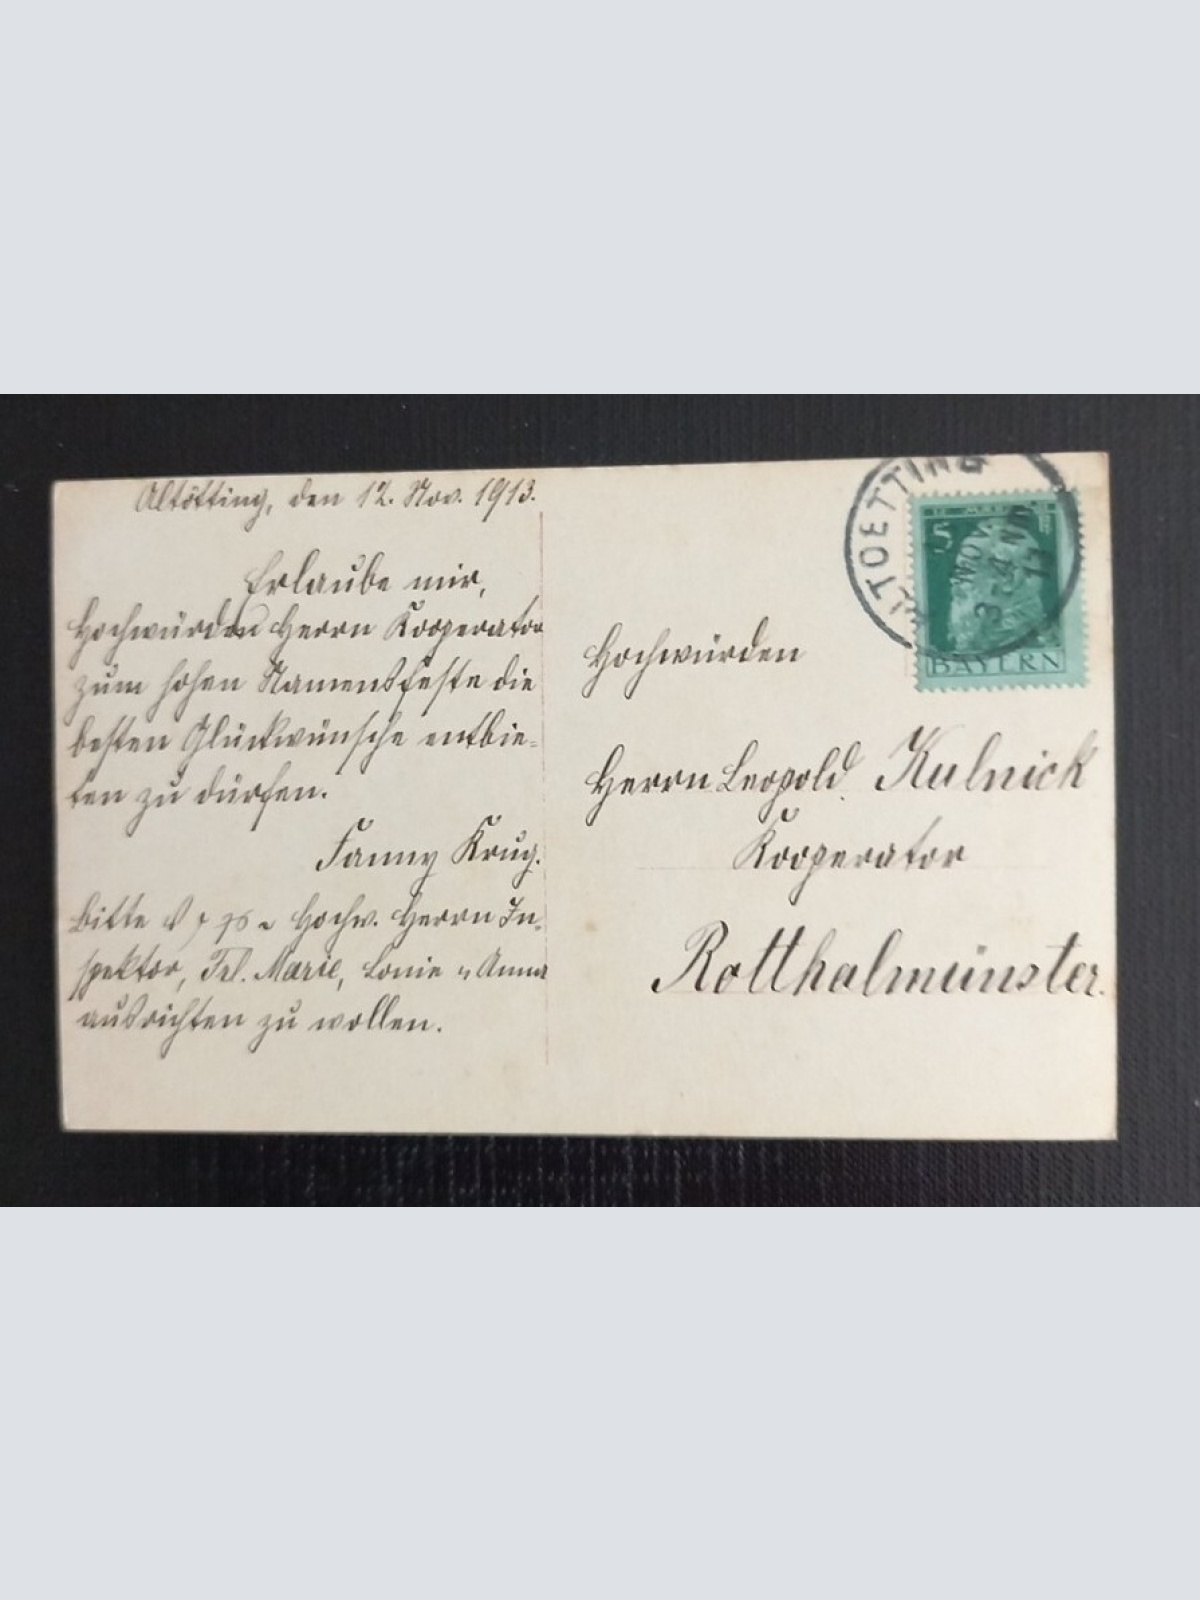 Altötting, den 12. Nov. 1913.
Erlaube mir,
Hochwürden Herrn Kooperator
zum hohen Namensfeste die
besten Glückwünsche entbie-
ten zu dürfen.
Fanny Krug.
Bitte Hochw. Herrn In-
spektor, Frl. Marie, Lonie u Anna
ausrichten zu wollen.
ALTOETTING
NOV.
3-4 NM
13
5
BAYERN
Hochwürden
Herrn Leopold Kulnick
Kooperator
Rotthalmünster.